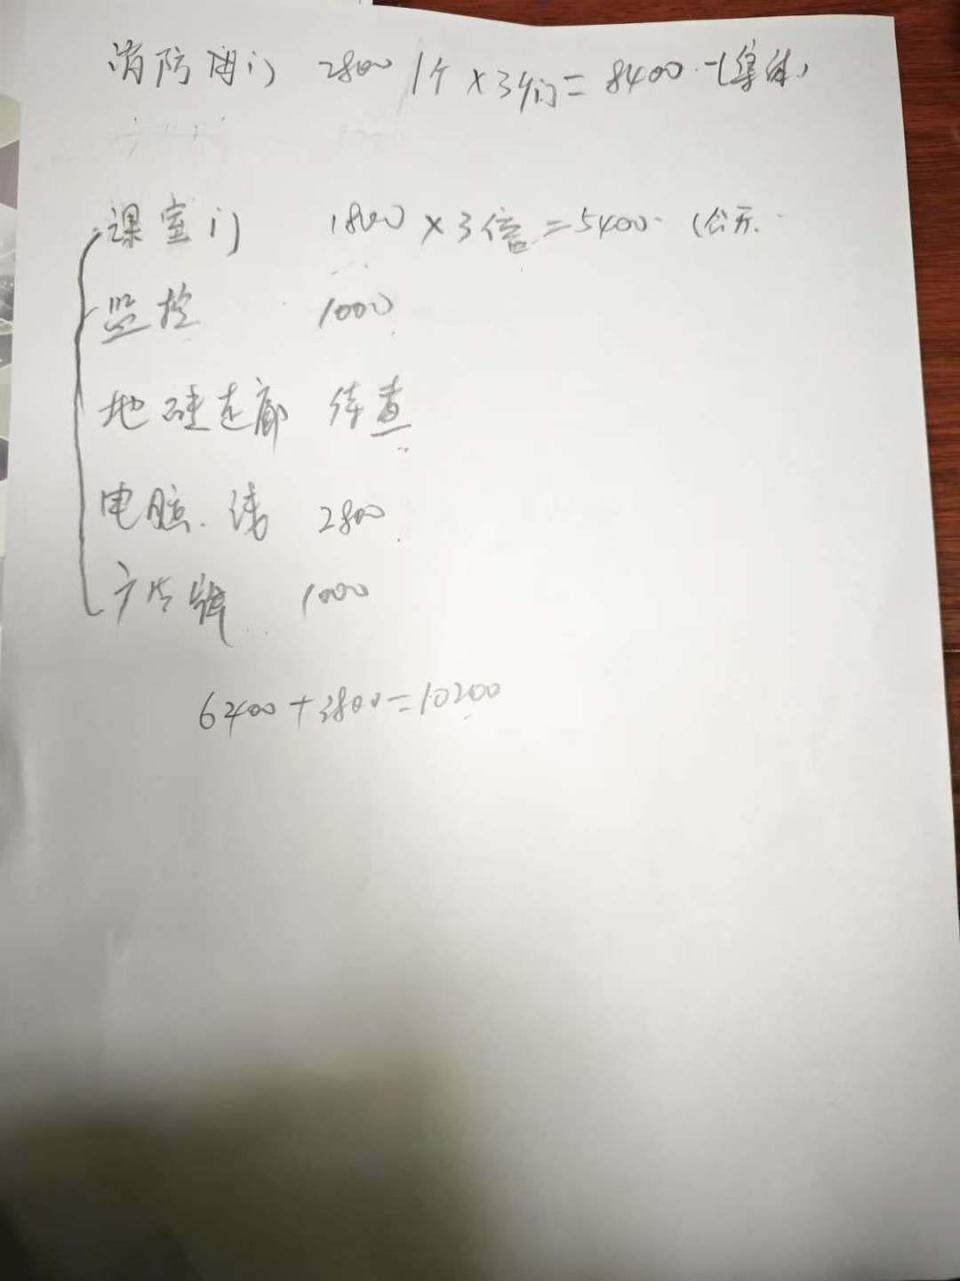 消防闸门 2800 1个×3们=8400.(集体)
课室门 1800×3倍=5400 (公
监控 1000
地 连廊 待查
电脑、线 2800
广 1000
6400+3800=10200